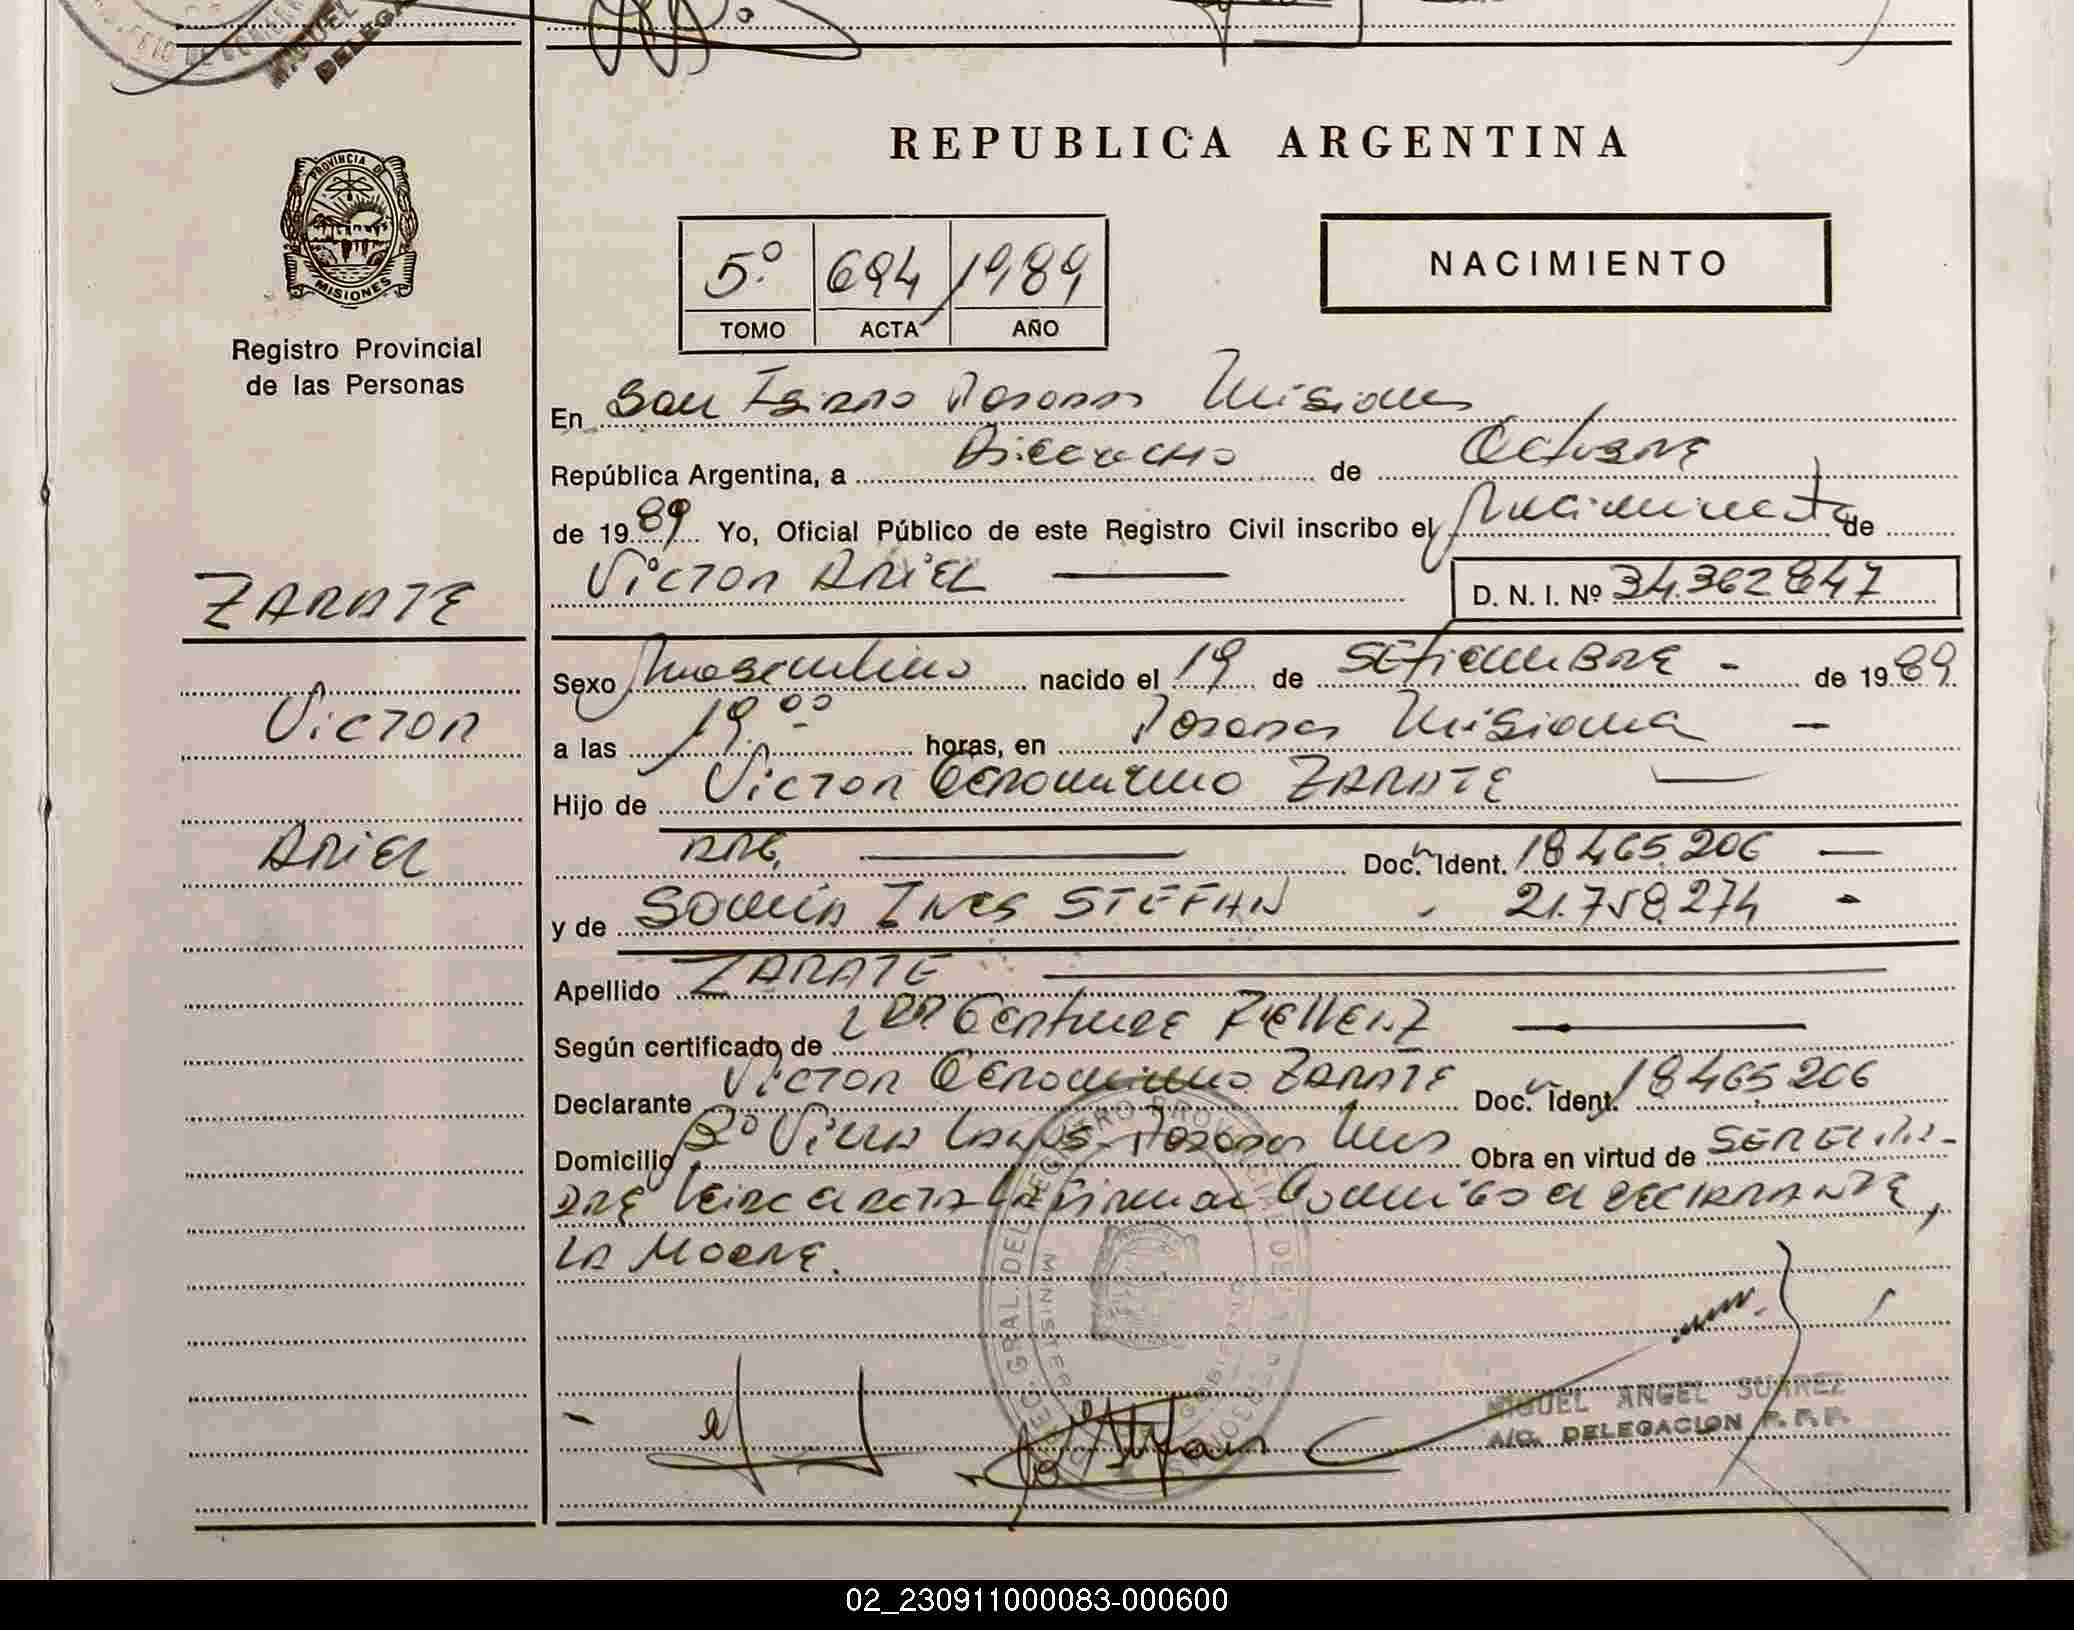 REPUBLICA ARGENTINA
PROVINCIA DE MISIONES
Registro Provincial
de las Personas
5º 694 1989
TOMO ACTA AÑO
NACIMIENTO
En San Isidro Posadas Misiones
República Argentina, a Dieciocho de Octubre
de 1989 Yo, Oficial Público de este Registro Civil inscribo el Nacimiento de
VICTOR ARIEL
D. N. I. Nº 34.362847
ZARATE
VICTOR
ARIEL
Sexo Masculino nacido el 19 de SEtiembre - de 1989
a las 19.00 horas, en Posadas Misiones -
Hijo de Victor Geronimo ZARATE
ARG. Doc. Ident. 18.465.206
y de SONIA INES STEFAN 21.758.274 -
Apellido ZARATE
Según certificado de
Declarante Victor Geronimo ZARATE Doc. Ident. 18465206
Domicilio Bº Villa Posadas Mnes Obra en virtud de SER EL PA-
DRE Leida el acta la firman Conmigo el DECLARANTE,
LA MADRE.
MIGUEL ANGEL SUAREZ
A/C. DELEGACION
02_230911000083-000600